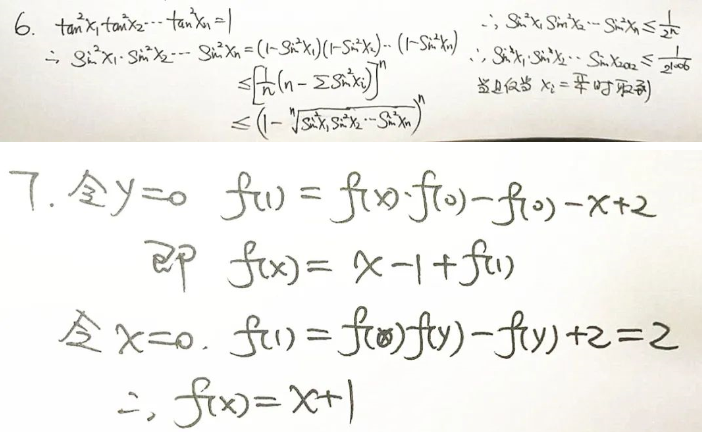 6. tan²x₁tan²x₂⋯tan²xₙ=1
∴ Sin²x₁·Sin²x₂⋯Sin²xₙ=(1-Sin²x₁)(1-Sin²x₂)⋯(1-Sin²xₙ)
≤[1/n(n-ΣSin²xᵢ)]ⁿ
≤(1-ⁿ√(Sin²x₁Sin²x₂⋯Sin²xₙ))ⁿ
∴ Sin²x₁Sin²x₂⋯Sin²xₙ≤1/2ⁿ
∴ Sinx₁·Sinx₂⋯Sinx₂₀₁₂≤1/2¹⁰⁰⁶
当且仅当 xᵢ=π/4时取到
7. 令y=0 f(1)=f(x)·f(0)-f(0)-x+2
即 f(x)=x-1+f(1)
令x=0. f(1)=f(0)f(y)-f(y)+2=2
∴ f(x)=x+1